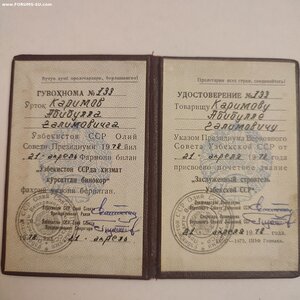 www.FORUMS-SU.com
Бутун дунё пролетарлари, бирлашингиз!
ГУВОҲНОМА № 133
Ўртоқ Каримов
Абибулла
Галимовичга
Узбекистон ССР Олий
Совети Президиуми 1978 йил
21 апрель фармони билан
Узбекистон ССРда хизмат
кўрсатган бинокор"
фахрий унвони берилган.
1978 21 апрель
Пролетарии всех стран, соединяйтесь!
УДОСТОВЕРЕНИЕ № 133
Товарищу Каримову
Абибулла
Галимовичу
Указом Президиума Верховного
Совета Узбекской ССР от
21 апреля 1978 г.
присвоено почетное звание
„Заслуженный строитель
Узбекской ССР"
21 апреля 1978 г.